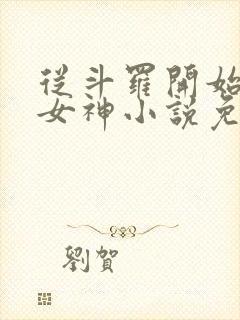 從斗羅開始
女神小說免
劉賀